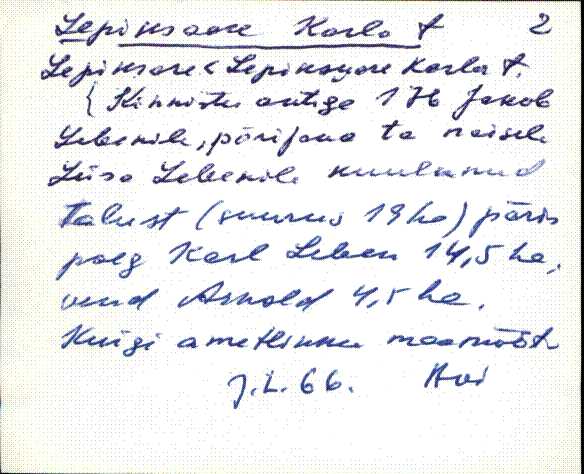 Lepiksaare Karla t 2
Lepiksare < Lepiksaare Karla t.
{ Kinnistu antiga 176 Jakob
Lebenile, pärijana ta naisele
Liisa Lebenile kuulunud
talust (suurus 19 ha) päris
poeg Karl Leben 14,5 ha,
vend Arnold 4,5 ha.
Kuigi ametlikku maamõõt-
J.L. 66. Avi